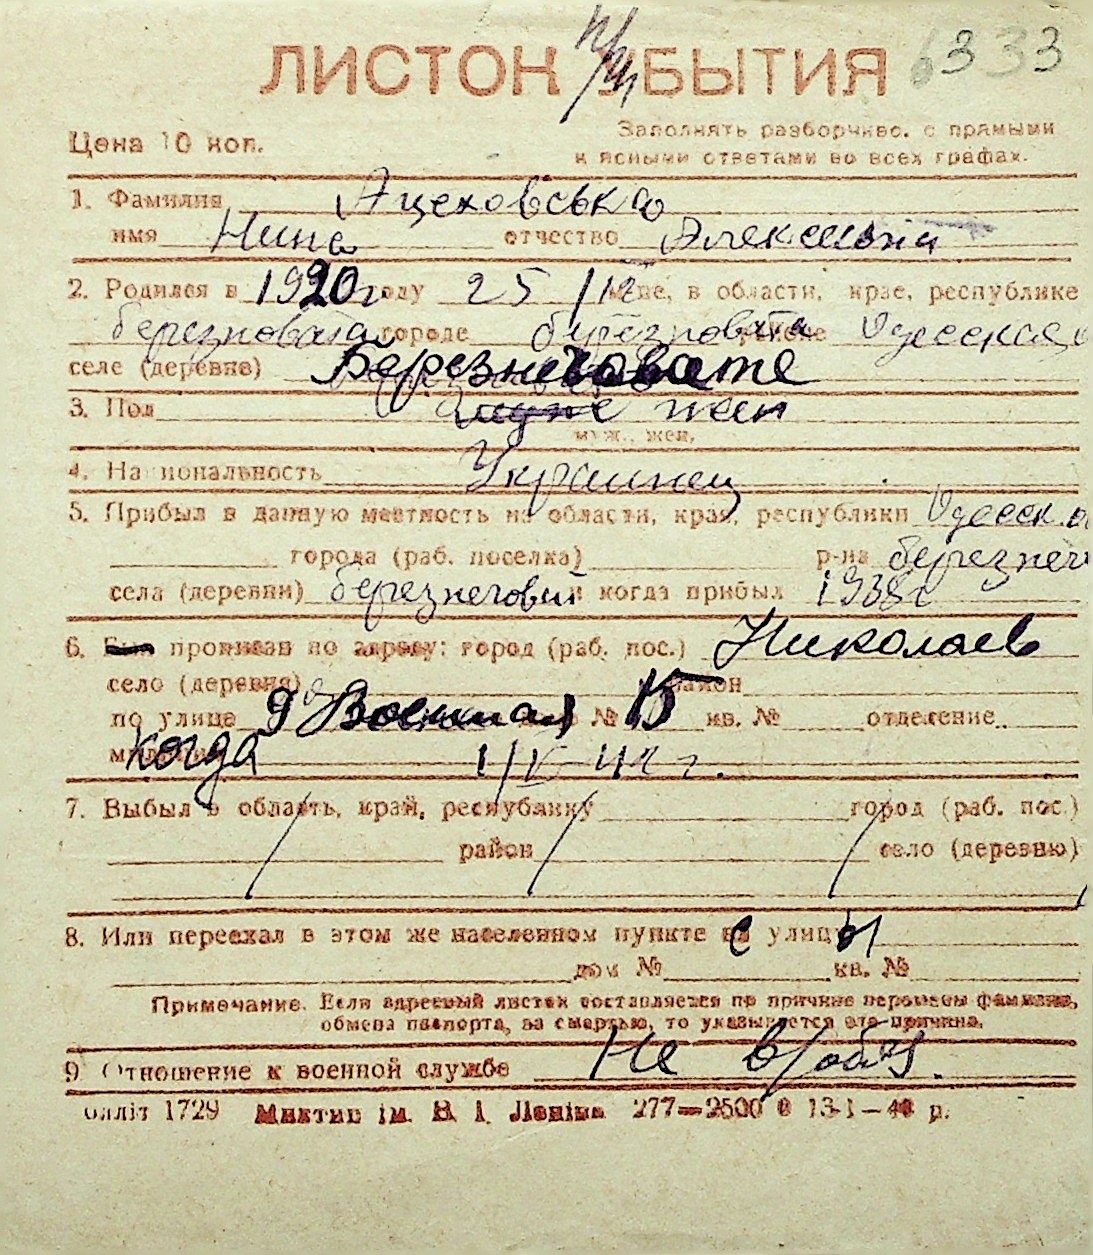 ЛИСТОК УБЫТИЯ 6333
Цена 10 коп.
Заполнять разборчиво, с прямыми
и ясными ответами во всех графах.
1. Фамилия Яцеховська
имя Нина отчество Алексеевна
2. Родился в 1920 г году 25/12 м-це, в области, крае, республике
березновата городе березновата районе Одесская о
селе (деревне) Березнеговате
3. Пол муж жен
муж., жен.
4. Национальность Украинец
5. Прибыл в данную местность из области, края, республики Одесск. о
города (раб. поселка) р-на березнег
села (деревни) березнеговат и когда прибыл 1938 г
6. Был прописан по адресу: город (раб. пос.) Николаев
село (деревня) район
по улице 9 Военная № 15 кв. № отделение
милиции Когда 1/V-41 г.
7. Выбыл в область, край, республику город (раб. пос.)
район село (деревню)
8. Или переехал в этом же населенном пункте с улицы
дом № кв. №
Примечание. Если адресный листок составляется по причине перемены фамилии,
обмена паспорта, за смертью, то указывается эта причина.
9 Отношение к военной службе Не в/обяз.
блліт 1729 Миктип ім. В. І. Леніна 277—2500 13-I—40 р.